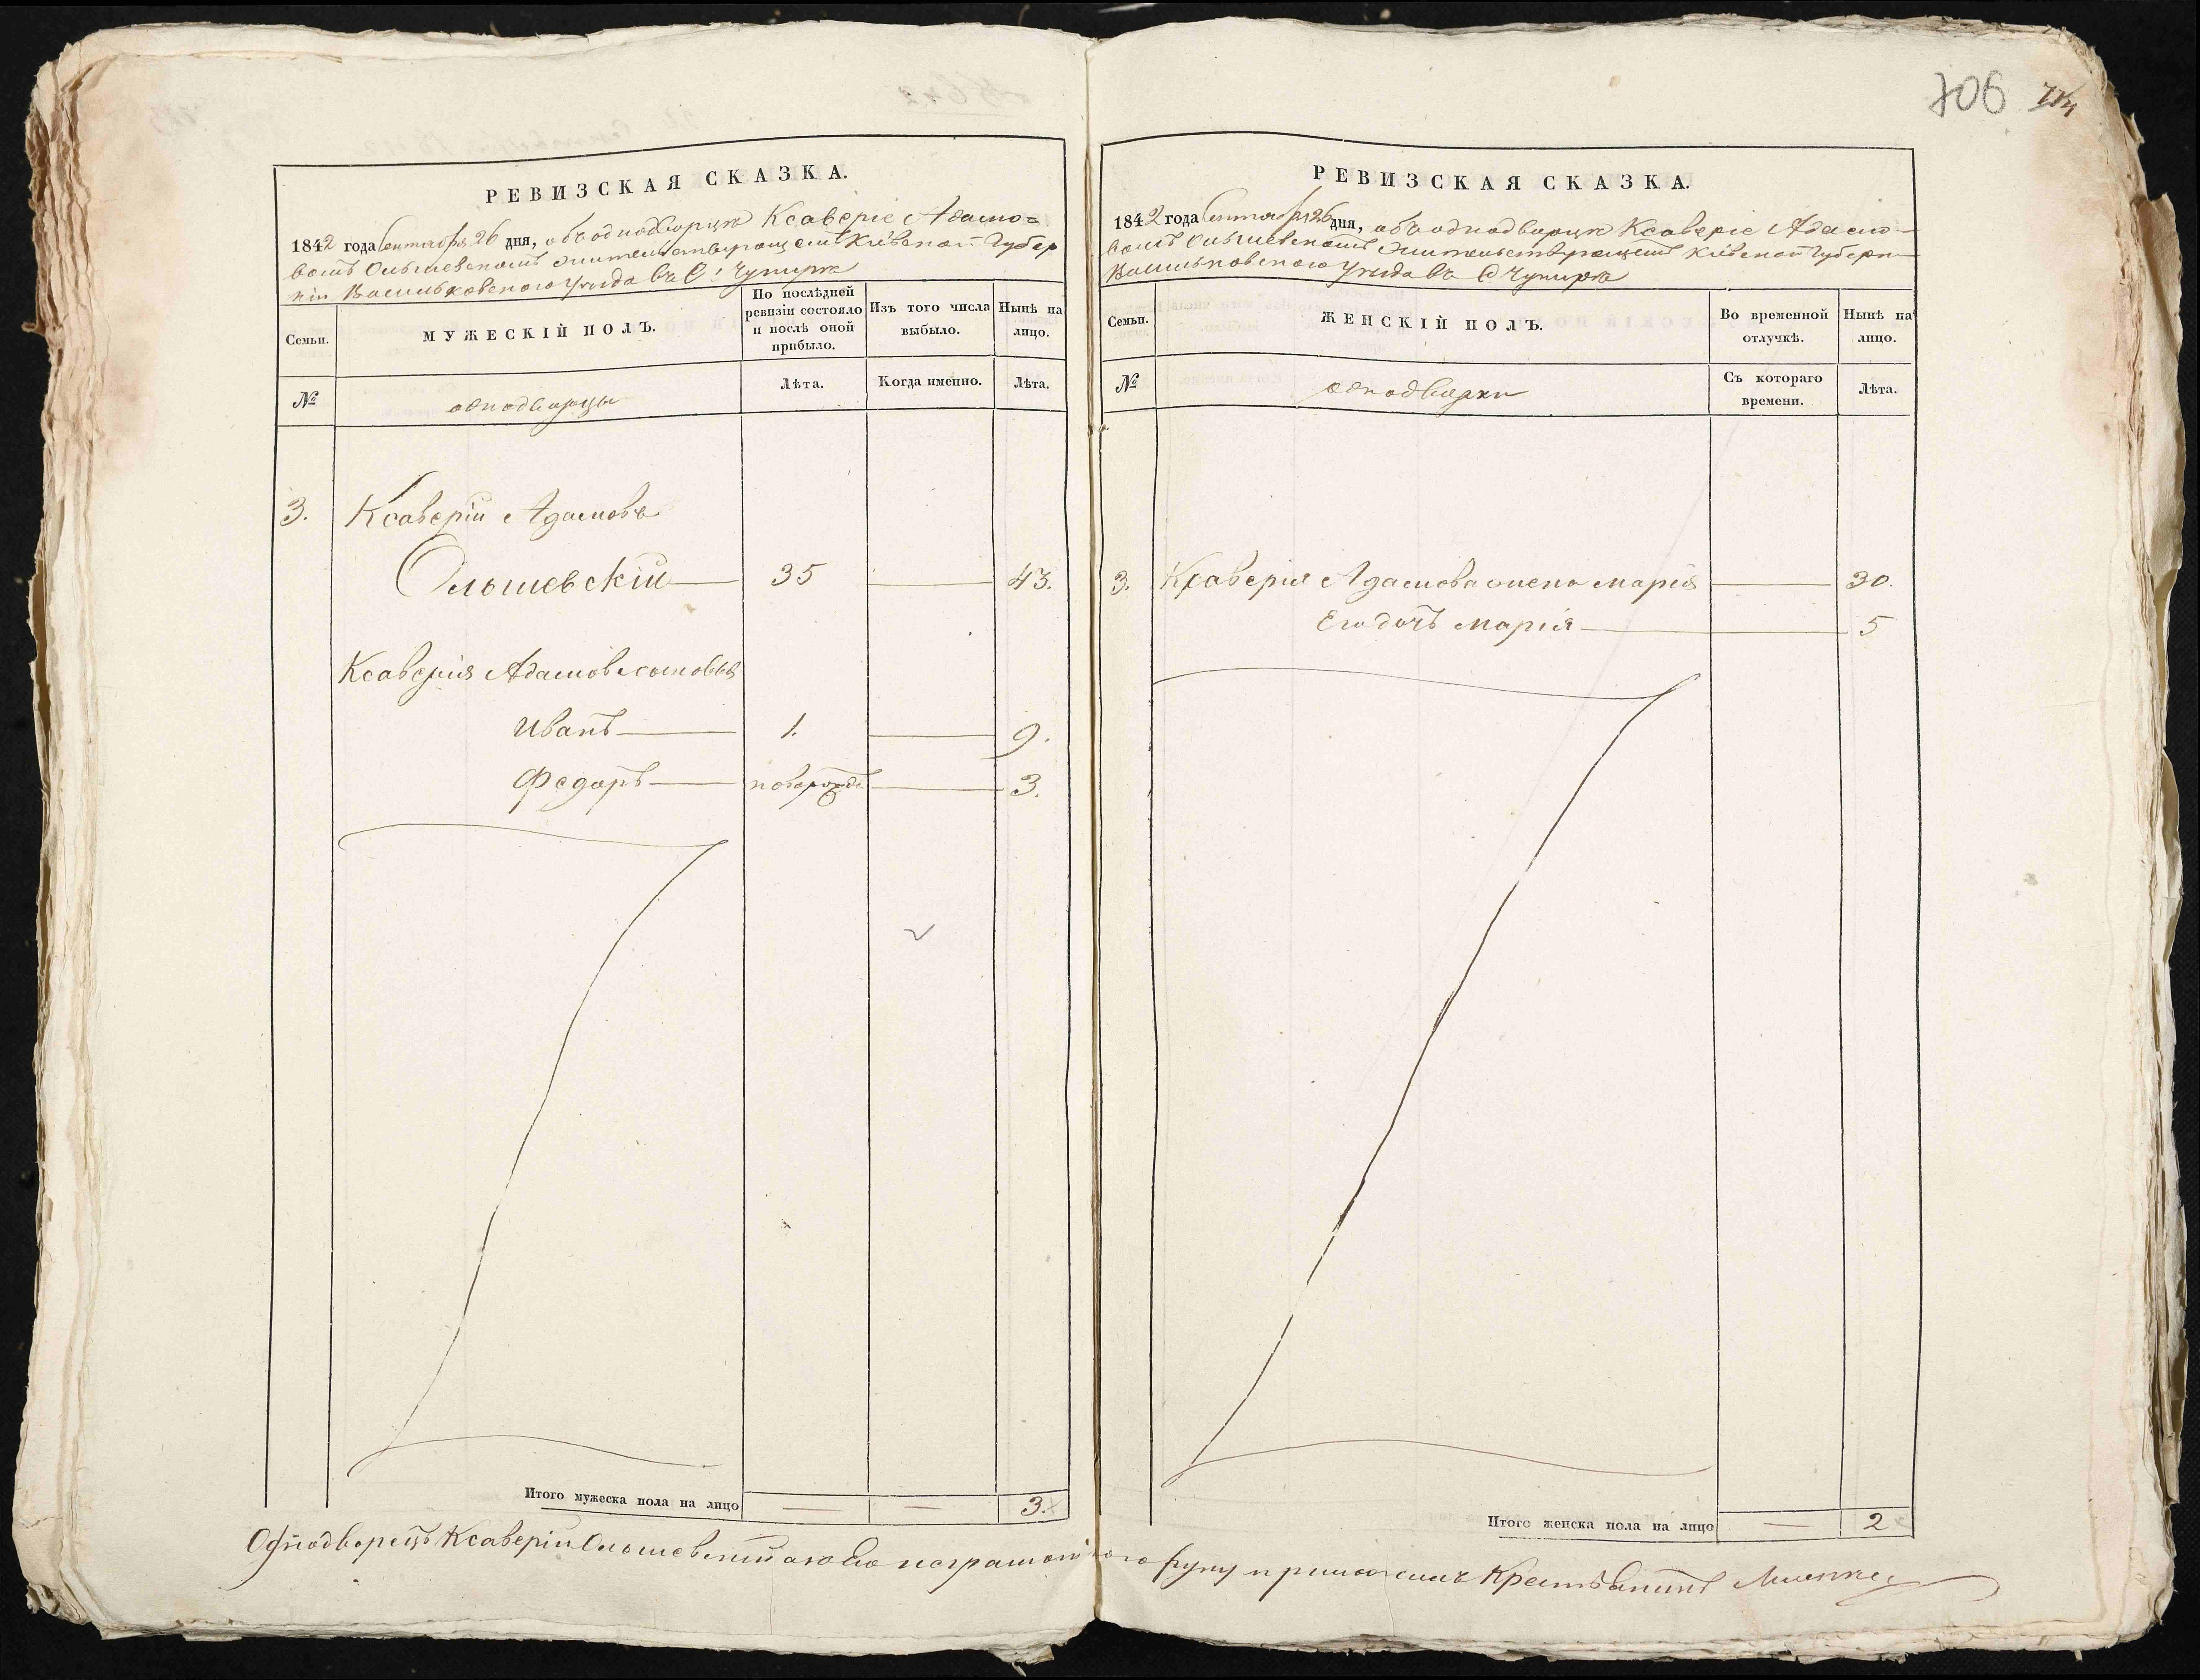 706 714
РЕВИЗСКАЯ СКАЗКА.
1842 года Сентября 26 дня, объ однодворцѣ Ксаверіе Адамо=
вомъ Ольшевскомъ жительствующемъ Кіевской Губер
ніи Васильковскаго уѣзда въ С: Чупирѣ
Семьи.
МУЖЕСКІЙ ПОЛЪ.
По послѣдней ревизіи состояло и послѣ оной прибыло.
Изъ того числа выбыло.
Нынѣ на лицо.
№
однодворцы
Лѣта.
Когда именно.
Лѣта.
3. Ксаверій Адамовъ
Ольшевскій 35 43.
Ксаверія Адамова сыновья
Иванъ 1. 9.
Федоръ новорожд 3.
Итого мужеска пола на лицо 3.
РЕВИЗСКАЯ СКАЗКА.
1842 года Сентября 26 дня, объ однодворцѣ Ксаверіе Адамо-
вомъ Ольшевскомъ жительствующемъ Кіевской Губерн
Васильковскаго уѣзда въ С Чупирѣ
Семьи.
ЖЕНСКІЙ ПОЛЪ.
Во временной отлучкѣ.
Нынѣ на лицо.
№
однодворки
Съ котораго времени.
Лѣта.
3. Ксаверія Адамова жена Марія 30.
Его дочь Марія 5
Итого женска пола на лицо 2
Однодворецъ Ксаверій Ольшевскій а за его неграмотного руку приложилъ Крестьянинъ